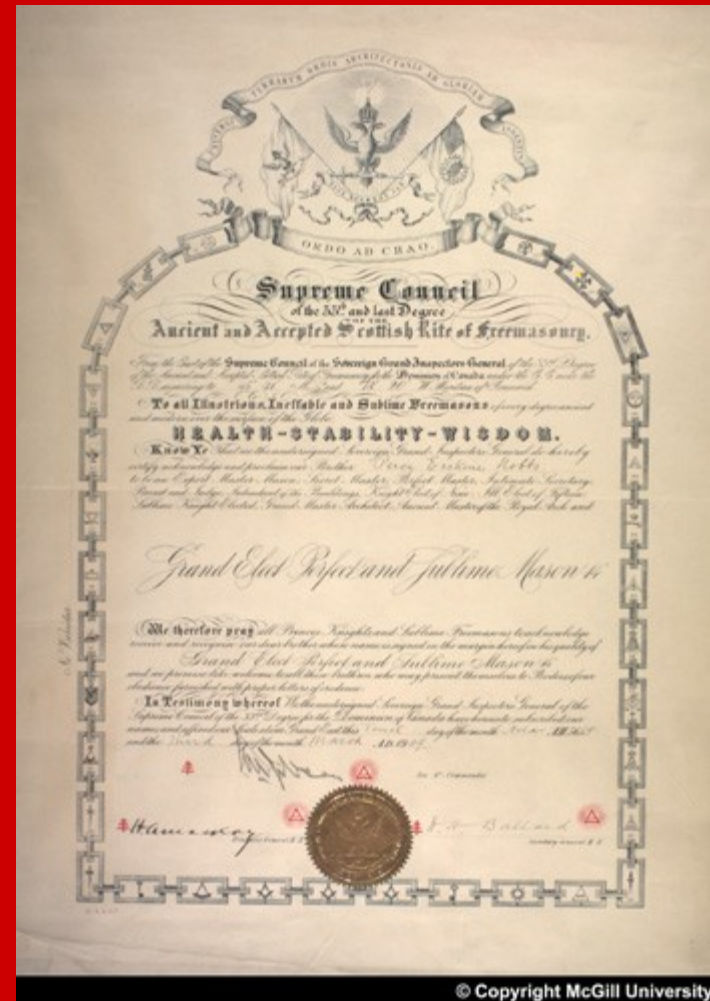 TERRARUM ORBIS ARCHITECTONIS AD GLORIAM
ORDO AB CHAO.
Supreme Council
of the 33rd and last Degree
OF THE
Ancient and Accepted Scottish Rite of Freemasonry.
From the East of the Supreme Council of the Sovereign Grand Inspectors General of the 33rd Degree
of the Ancient and Accepted Scottish Rite of Freemasonry for the Dominion of Canada under the
To all Illustrious, Ineffable and Sublime Freemasons of every degree ancient
and modern over the surface of the Globe
HEALTH-STABILITY-WISDOM.
Know Ye That we the undersigned Sovereign Grand Inspectors General do hereby
certify acknowledge and proclaim our Brother Percy Erskine Nobbs
to be an Expert Master Mason, Secret Master, Perfect Master, Intimate Secretary,
Provost and Judge, Intendant of the Buildings, Knight Elect of Nine, Ill. Elect of Fifteen,
Sublime Knight Elected, Grand Master Architect, Ancient Master of the Royal Arch and
Grand Elect Perfect and Sublime Mason
We therefore pray all Princes Knights and Sublime Freemasons to acknowledge
receive and recognize our dear brother whose name is signed in the margin hereof in his quality of
Grand Elect Perfect and Sublime Mason
and we promise like welcome to all those brethren who may present themselves to Bodies of our
obedience furnished with proper letters of credence.
In Testimony whereof We the undersigned Sovereign Grand Inspectors General of the
Supreme Council of the 33rd Degree for the Dominion of Canada have hereunto subscribed our
names and affixed our Seals at our Grand East this day of the month
and the third day of the month March A.D. 1909
Commander
J. W. Ballard
Secretary General
© Copyright McGill University